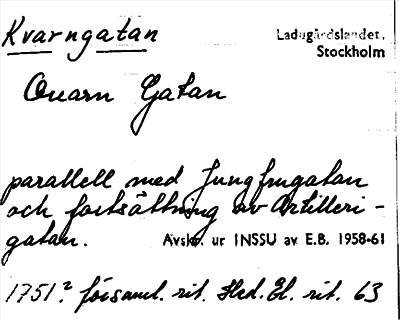 Kvarngatan
Ladugårdslandet,
Stockholm
Quarn Gatan
parallell med Jungfrugatan
och fortsättning av Artilleri-
gatan.
Avskr. ur INSSU av E.B. 1958-61
1751.² församl. rit. Hed. El. rit. 63